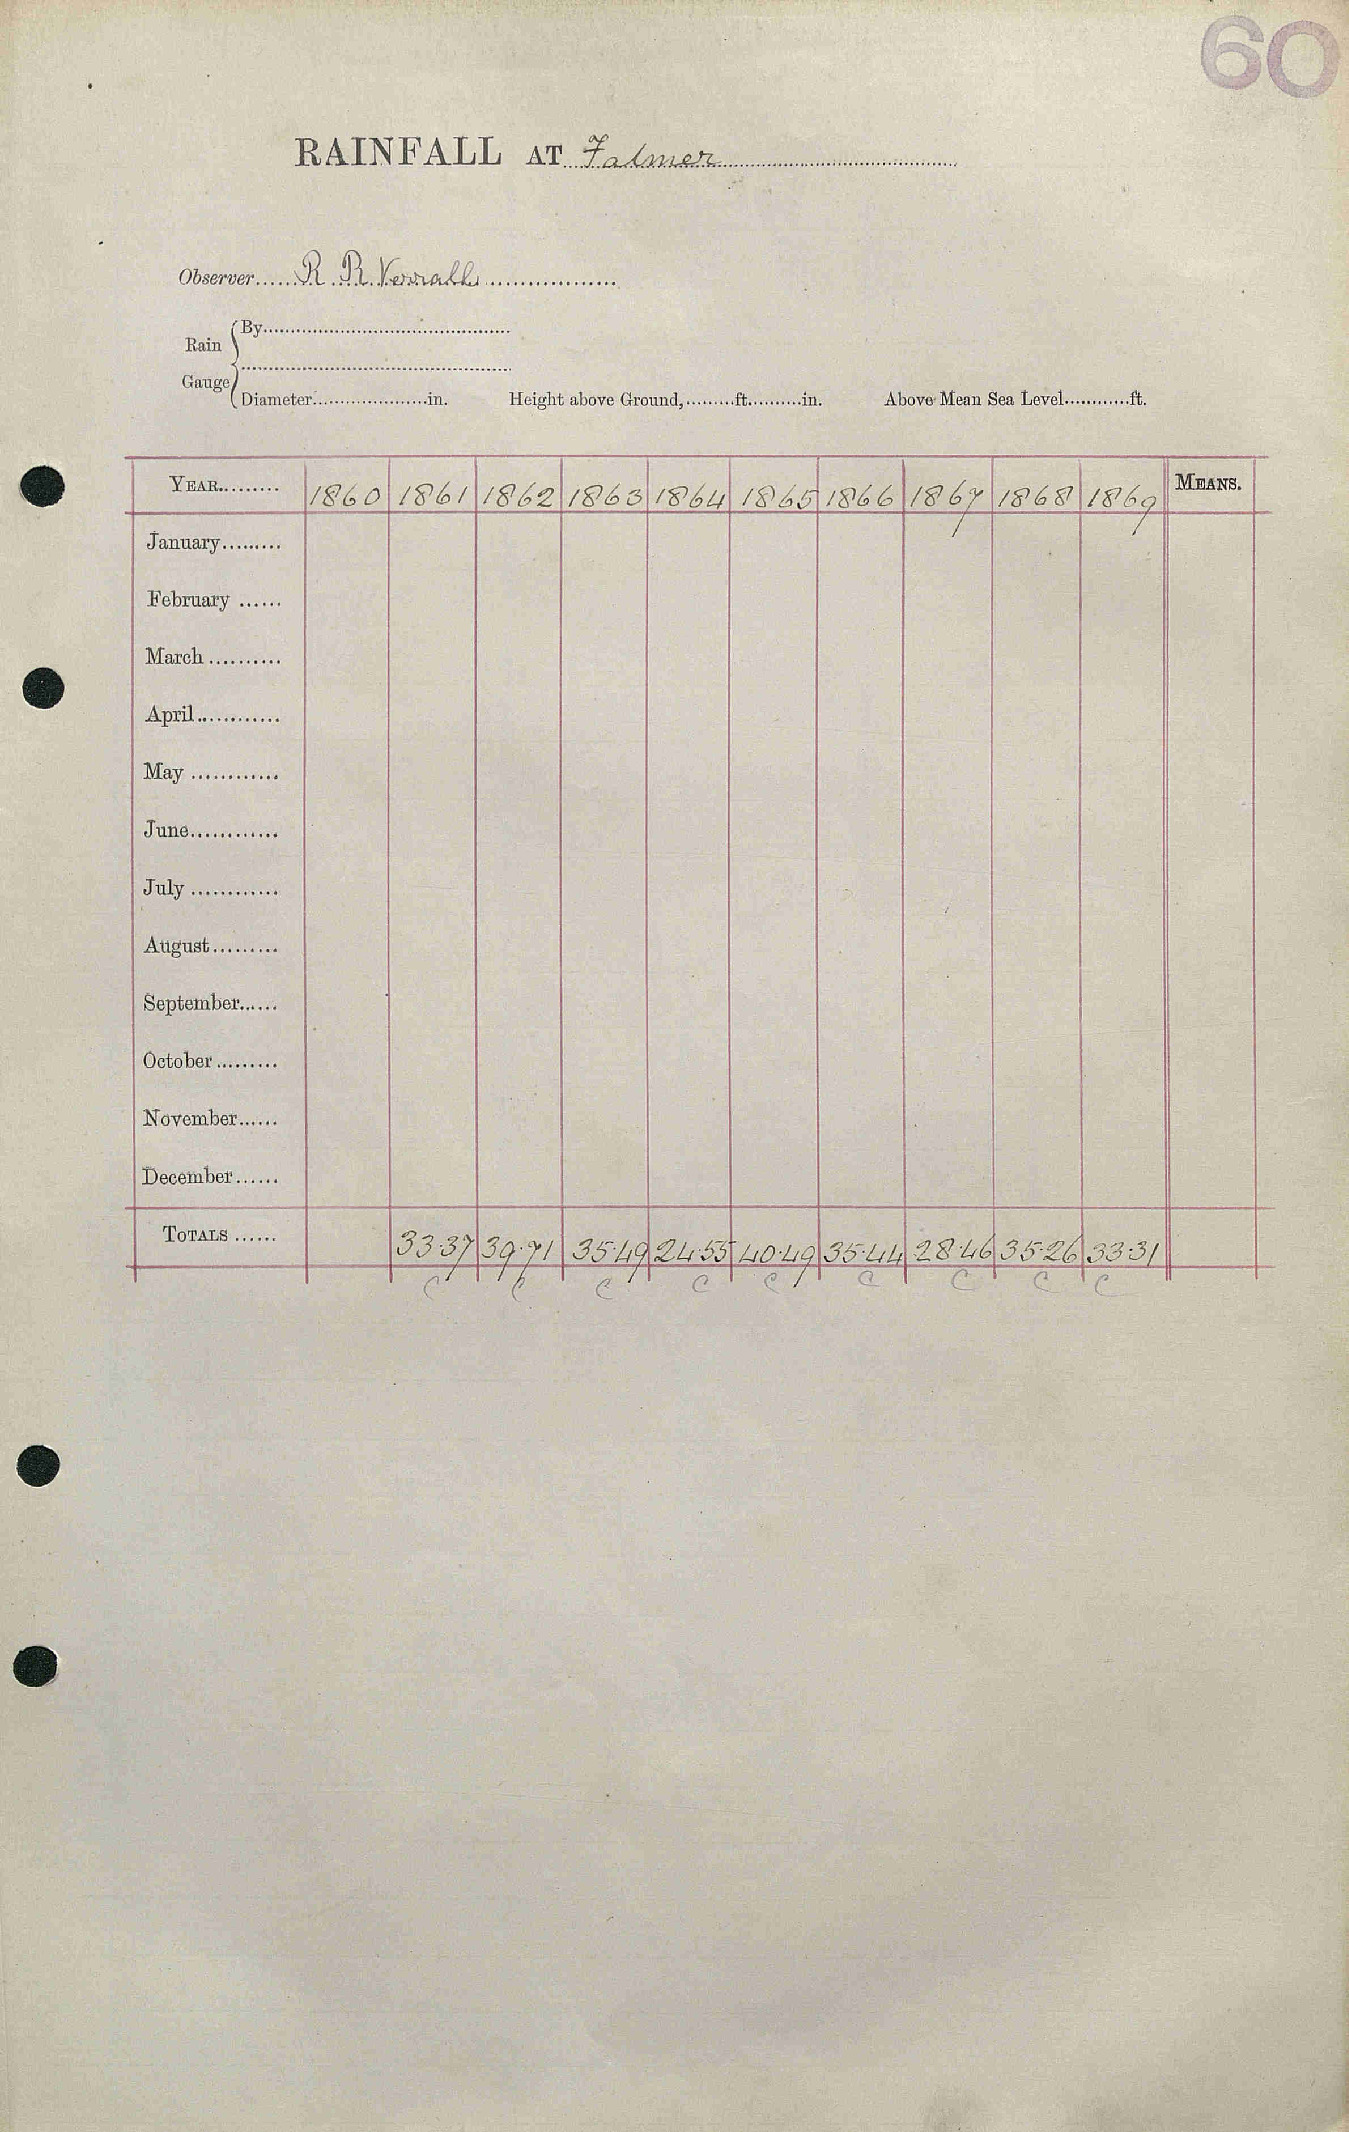 60
RAINFALL AT Falmer
Observer......R. R. Verrall
Rain Gauge
By
Diameter....................in. Height above Ground,.........ft..........in. Above Mean Sea Level............ft.
YEAR......... 1860 1861 1862 1863 1864 1865 1866 1867 1868 1869 MEANS.
January.........
February ......
March..........
April............
May ............
June............
July ............
August.........
September......
October.........
November......
December......
TOTALS ...... 33·37 39·71 35·49 24·55 40·49 35·44 28·46 35·26 33·31
C C C C C C C C C